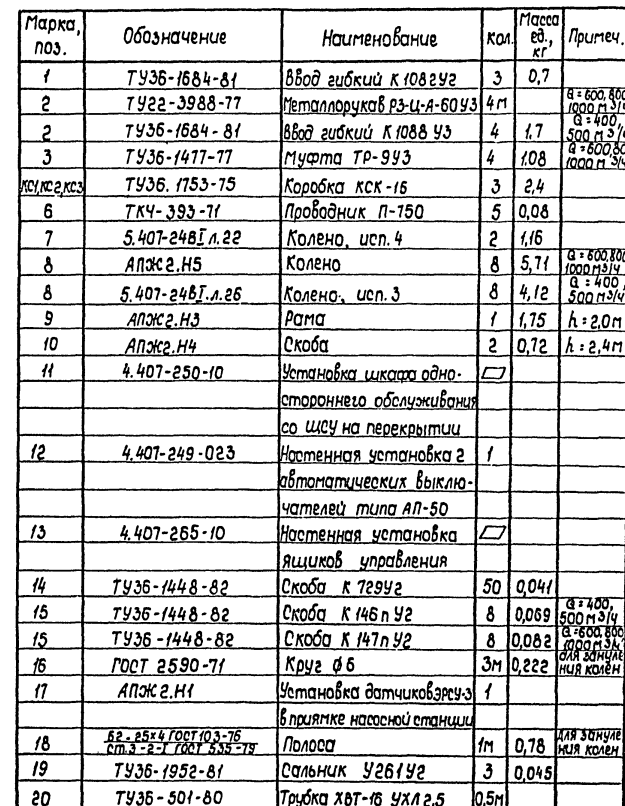 Марка, поз. Обозначение Наименование Кол. Масса ед., кг Примеч.
1 ТУ36-1684-81 Ввод гибкий К1082У2 3 0,7
2 ТУ22-3988-77 Металлорукав РЗ-Ц-А-60У3 4м Q=600,800 1000 м3/ч
2 ТУ36-1684-81 Ввод гибкий К1088 У3 4 1,7 Q=400, 500 м3/ч
3 ТУ36-1477-77 Муфта ТР-9У3 4 1,08 Q=600,800 1000 м3/ч
КС1,КС2,КС3 ТУ36.1753-75 Коробка КСК-16 3 2,4
6 ТК4-393-71 Проводник П-750 5 0,08
7 5.407-24вI л.22 Колено, исп. 4 2 1,16
8 АПЖ2.Н5 Колено 8 5,71 Q=600,800 1000м3/ч
8 5.407-24вI.л.26 Колено, исп. 3 8 4,12 Q=400, 500м3/ч
9 АПЖ2.Н3 Рама 1 1,75 h=2,0м
10 АПЖ2.Н4 Скоба 2 0,72 h=2,4м
11 4.407-250-10 Установка шкафа одно-
стороннего обслуживания
со ЩСУ на перекрытии
12 4.407-249-023 Настенная установка 2 1
автоматических выклю-
чателей типа АП-50
13 4.407-265-10 Настенная установка
ящиков управления
14 ТУ36-1448-82 Скоба К 729У2 50 0,041
15 ТУ36-1448-82 Скоба К146п У2 8 0,069 Q=400, 500 м3/ч
15 ТУ36-1448-82 Скоба К147п У2 8 0,082 Q=600,800 1000м3/ч
16 ГОСТ 2590-71 Круг ф6 3м 0,222 для зануле- ния колен
17 АПЖ2.Н1 Установка датчиков ЭРСУ-3 1
в приямке насосной станции
18 Б2-25х4 ГОСТ103-76 Ст.3-2-I ГОСТ 535-79 Полоса 1м 0,78 для зануле- ния колен
19 ТУ36-1952-81 Сальник У261У2 3 0,045
20 ТУ36-501-80 Трубка ХВТ-16 УХЛ2.5 0,5м